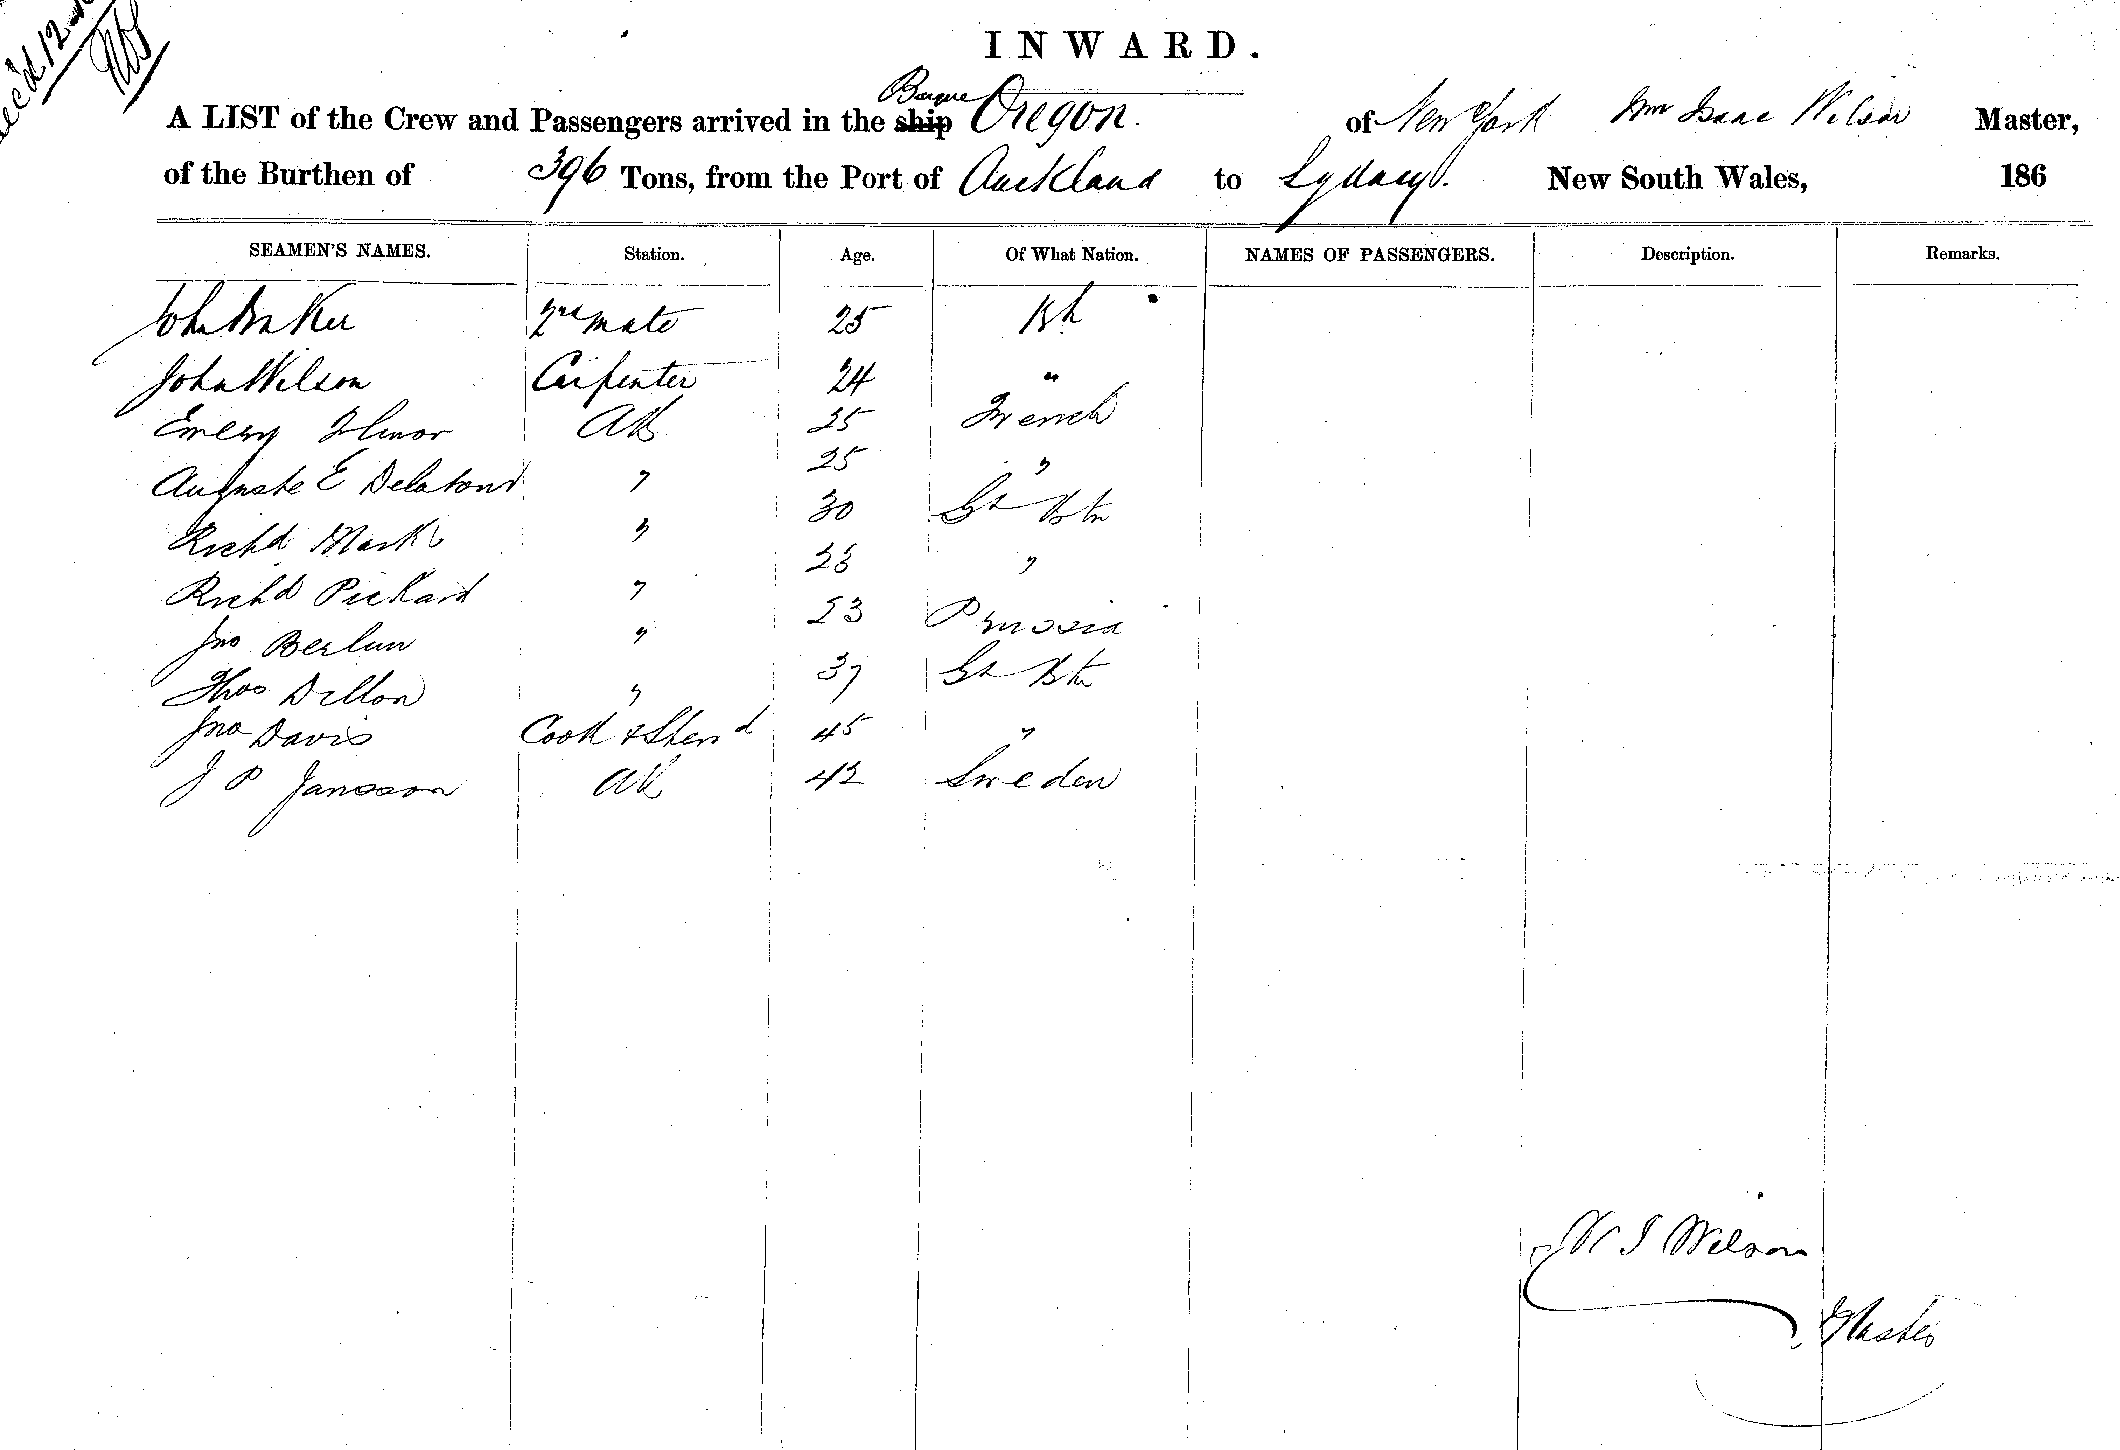 INWARD.
Barque
A LIST of the Crew and Passengers arrived in the ship Oregon. of New York Wm Isaac Wilson Master,
of the Burthen of 396 Tons, from the Port of Auckland to Sydney. New South Wales, 186
SEAMEN'S NAMES. Station. Age. Of What Nation. NAMES OF PASSENGERS. Description. Remarks.
John 2nd Mate 25 Bh
John Wilson Carpenter 24 "
Emery AB 25 French
Auguste E 25 "
Richd Mark " 30 Gt Btn
Richd Pickard " "
Jno " 23 Prussia
Thos Dillon " 37 Gt Btn
Jno Davis Cook & Stewd 45 "
J P Jansson AB 42 Sweden
W I Wilson
Master